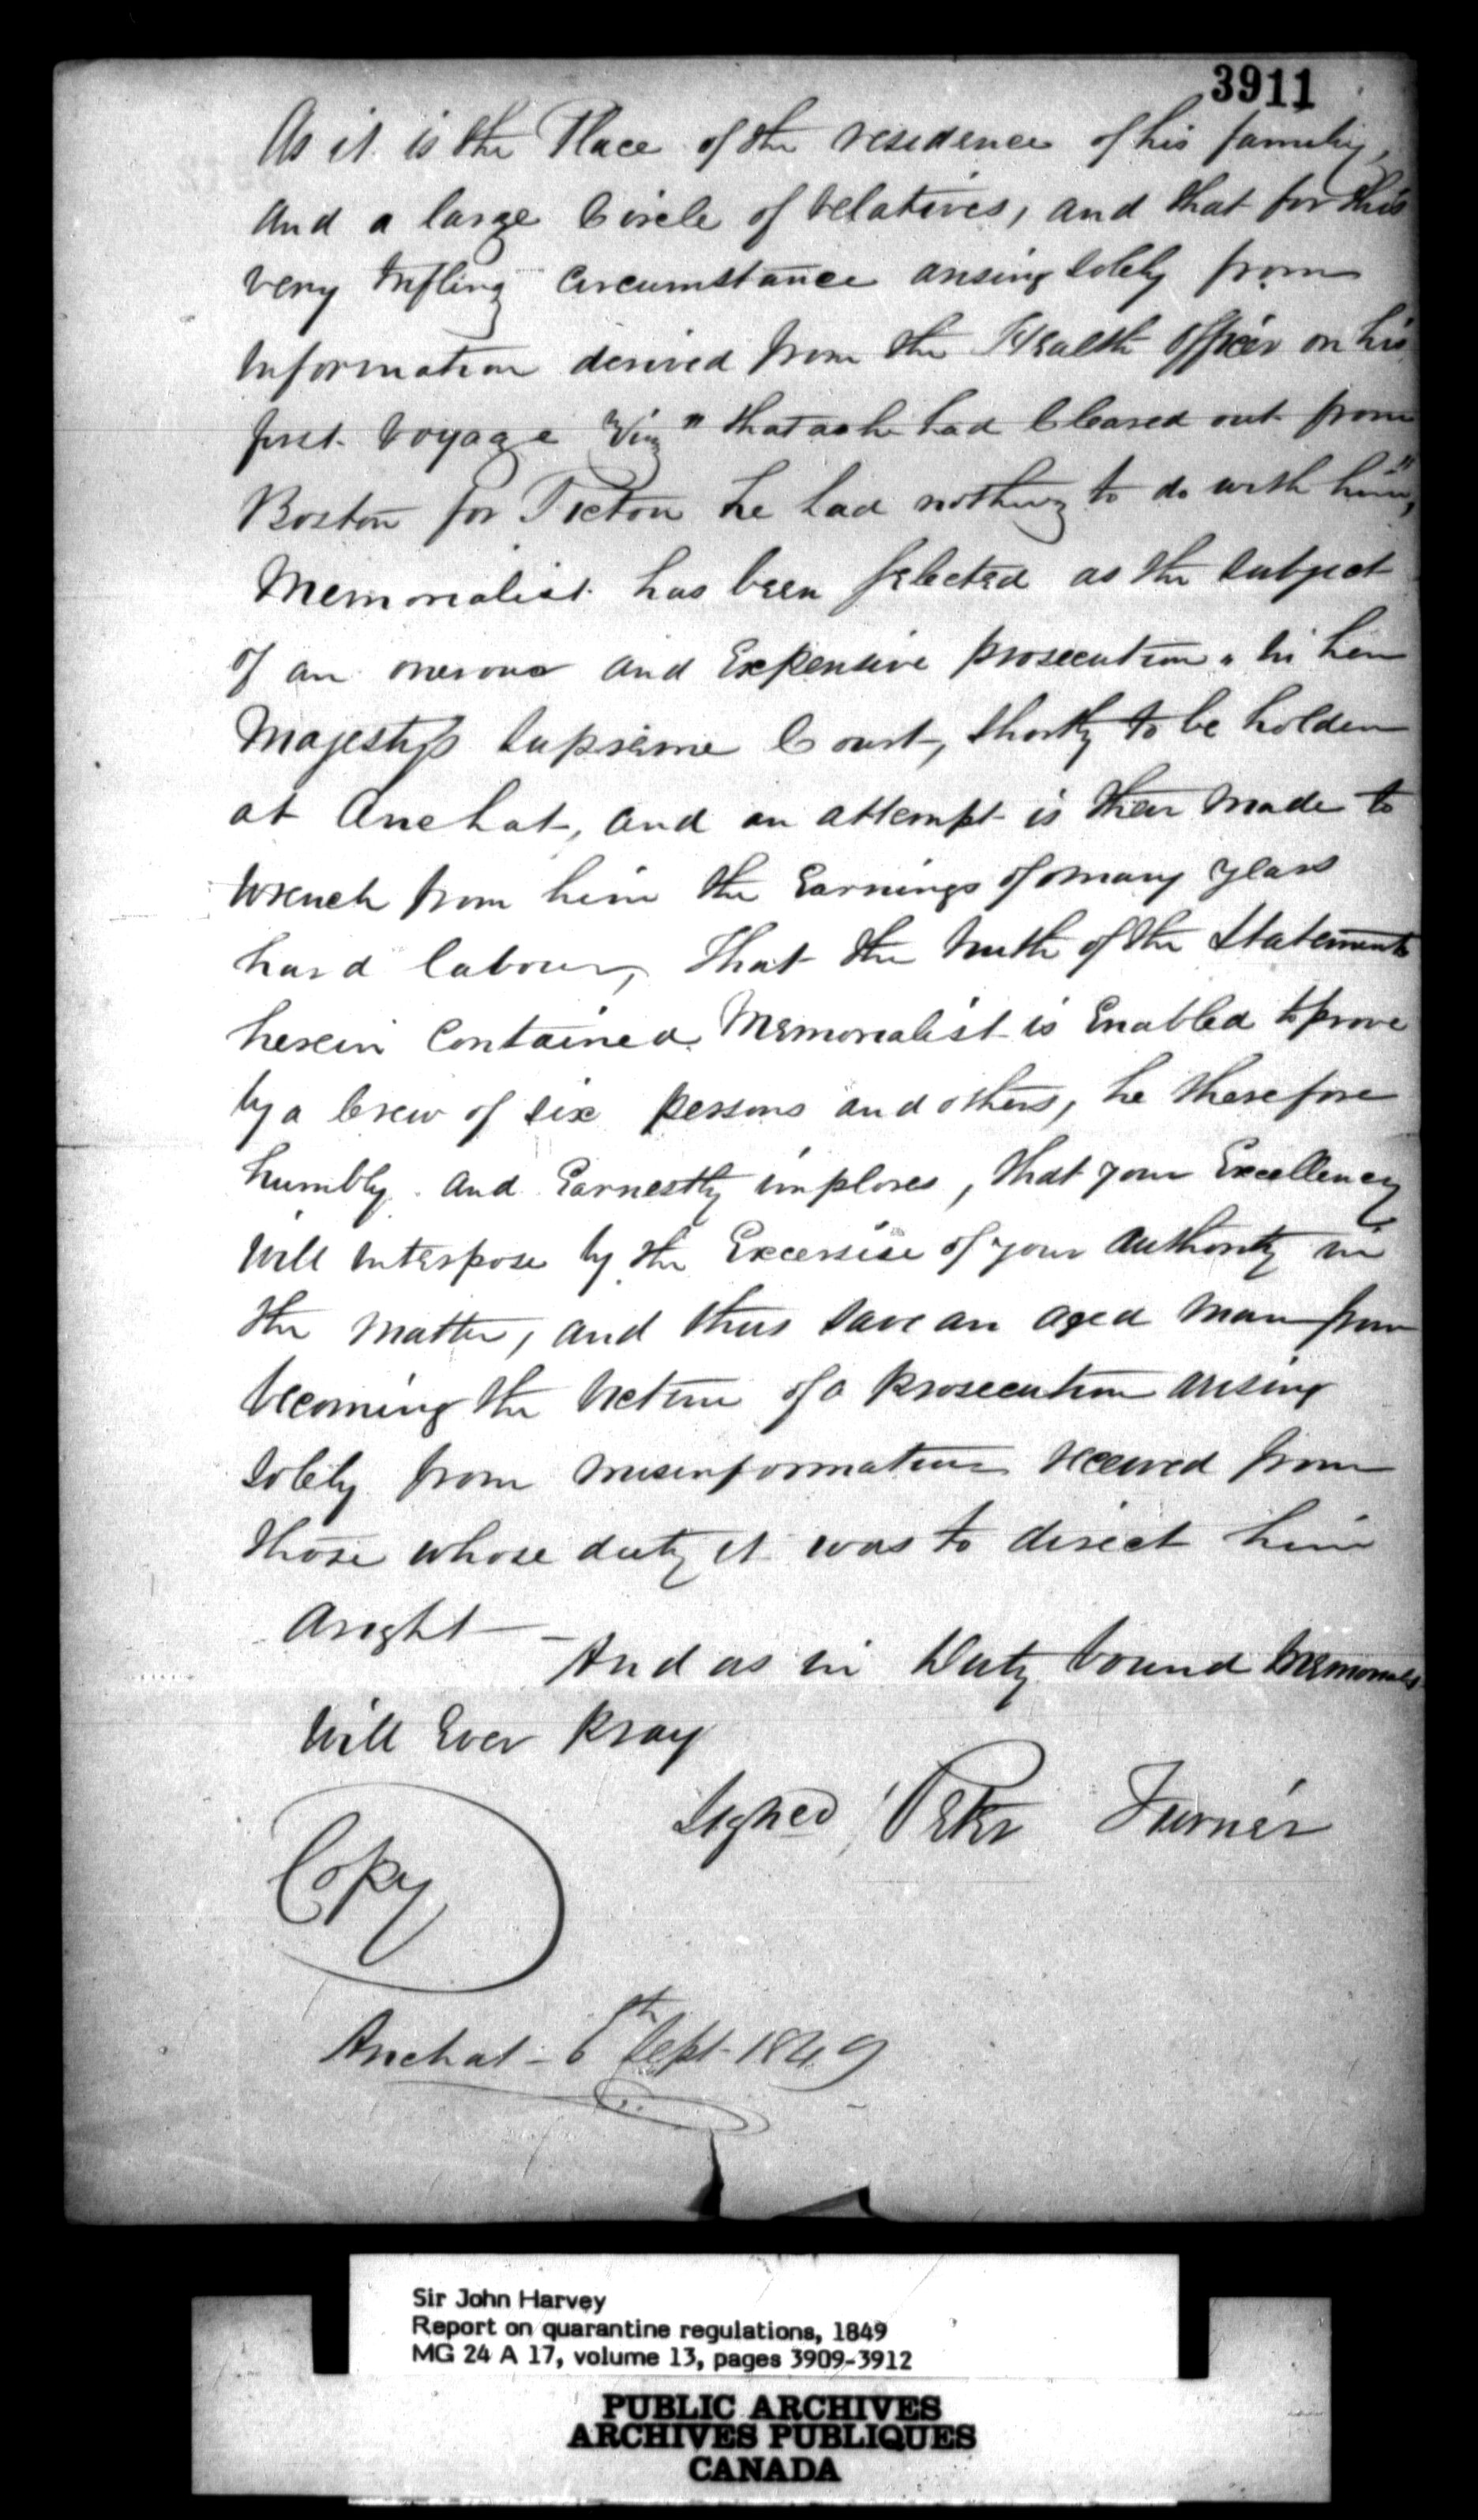 3911
As it is the Place of the residence of his family,
and a large Circle of relatives, and that for this
very trifling circumstance arising solely from
information derived from the Health officer on his
first voyage Viz "that as he had Cleared out from
Boston for Pictou he had nothing to do with him",
Memorialist has been selected as the subject
of an onerous and Expensive prosecution in her
Majesty's Supreme Court, shortly to be holden
at Arichat, and an attempt is then made to
wrench from him the Earnings of many years
hard labour, that the truth of the Statements
herein Contained Memorialist is Enabled to prove
by a Crew of six persons and others, he therefore
humbly and Earnestly implores, that your Excellency
will interpose by the Excersise of your authority in
the matter, and thus save an aged man from
becoming the victim of a prosecution arising
solely from misinformation received from
those whose duty it was to direct him
aright —
And as in Duty bound
Will Ever pray
Signed, Peter Turner
Copy
Arichat - 6th Sept 1849
Sir John Harvey
Report on quarantine regulations, 1849
MG 24 A 17, volume 13, pages 3909-3912
PUBLIC ARCHIVES
ARCHIVES PUBLIQUES
CANADA